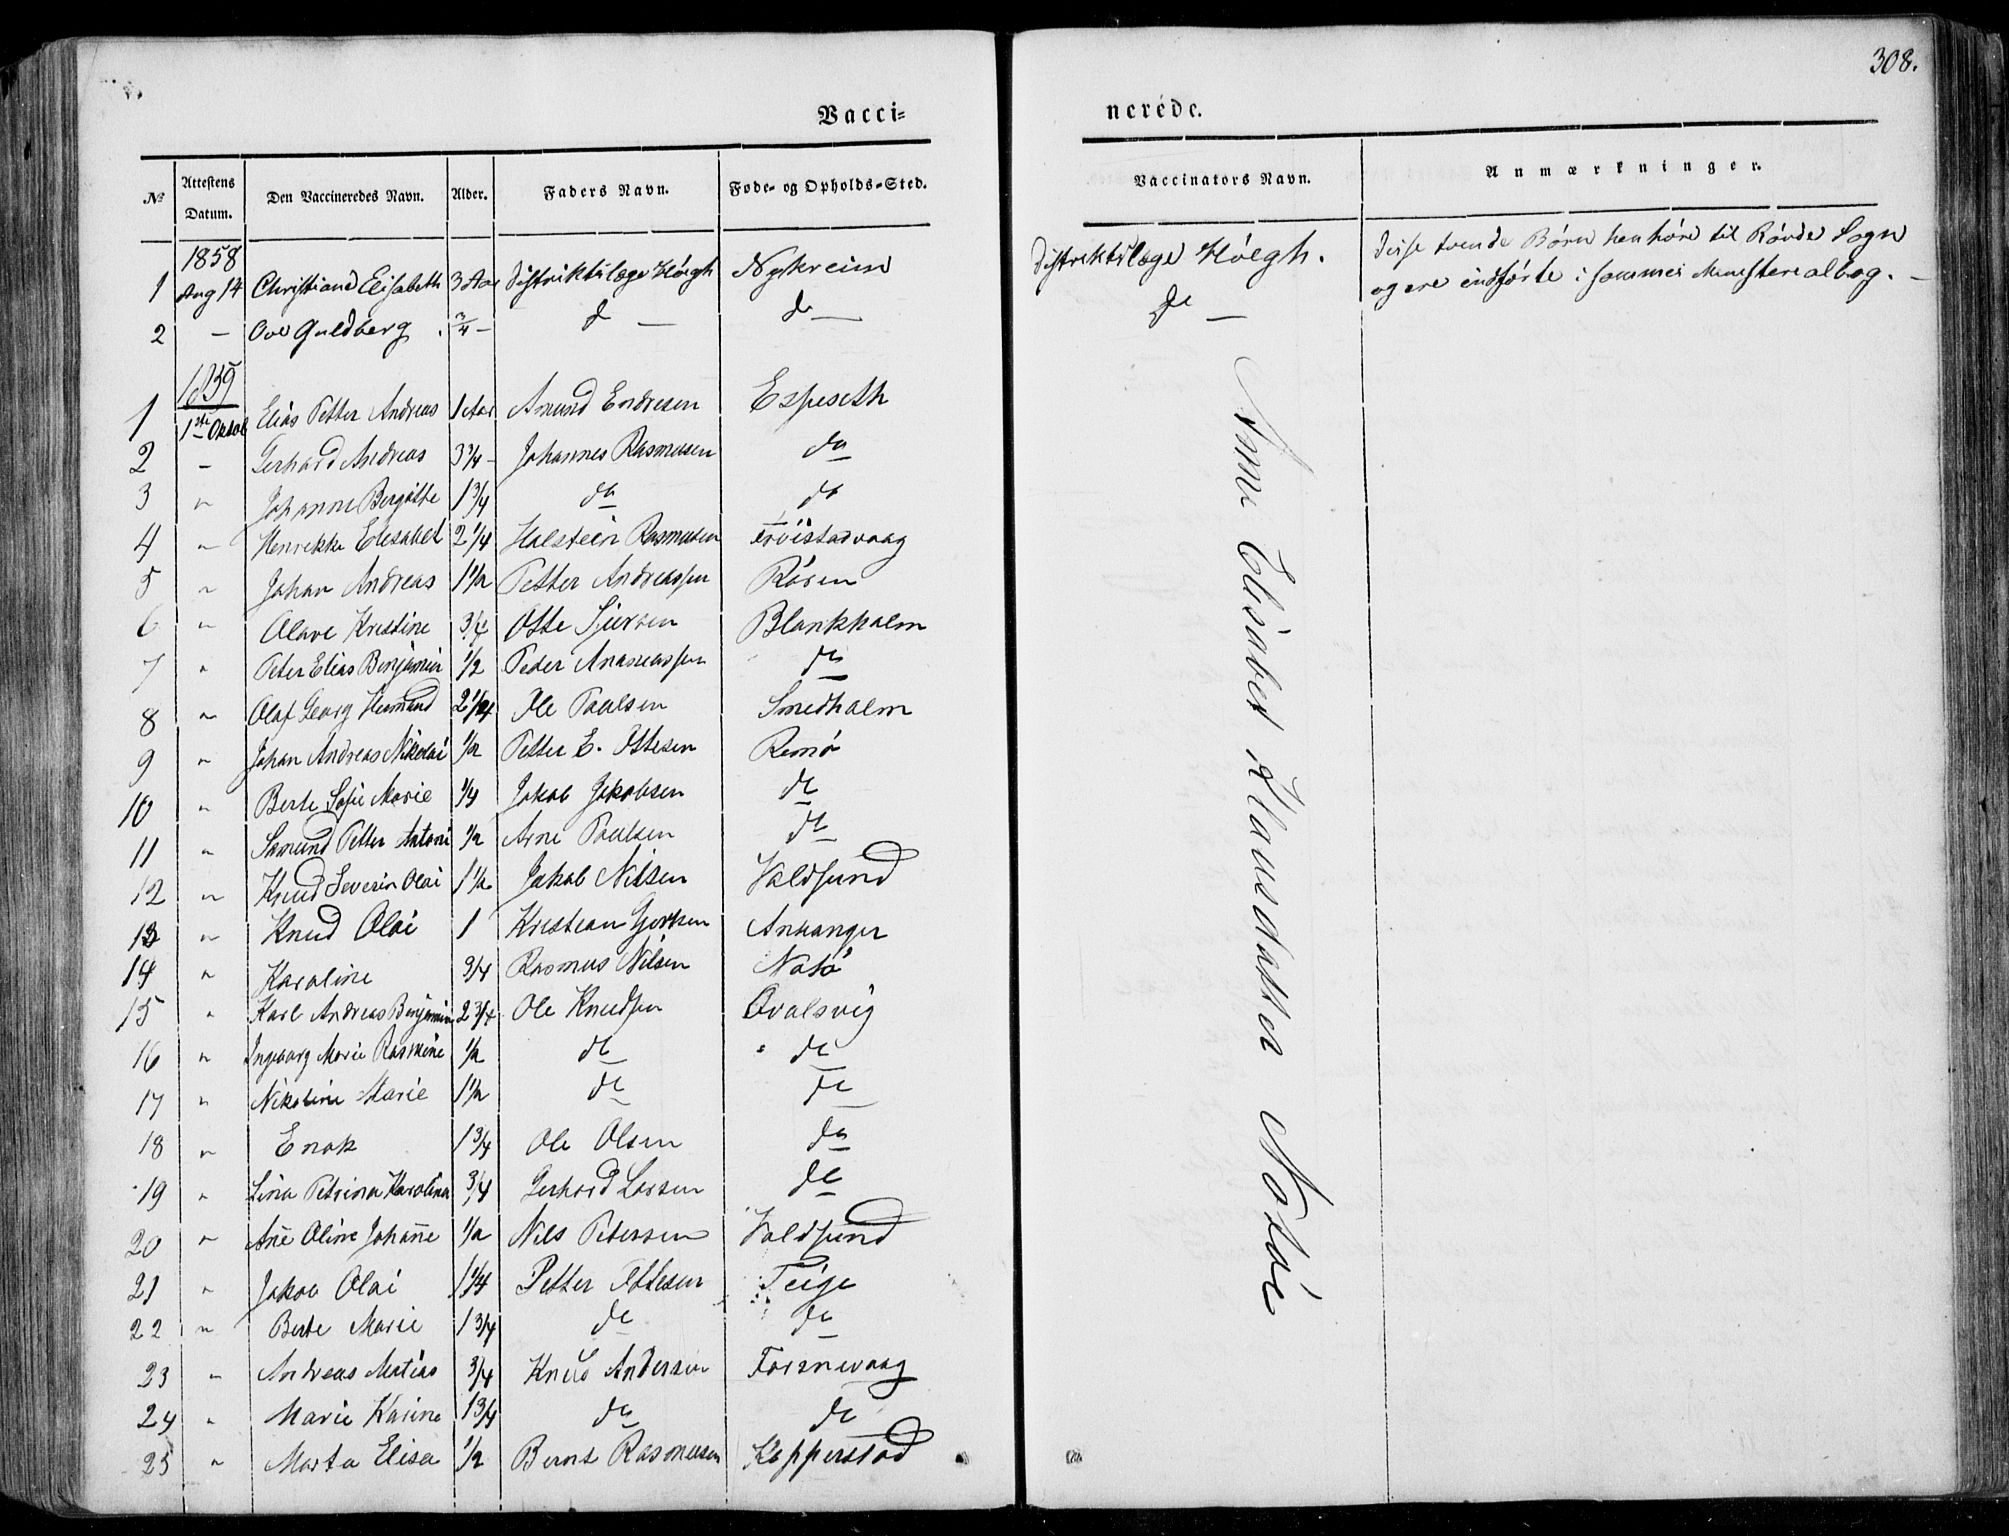 308.
Vacci=
nerede.
№ Attestens Datum. Den Vaccineredes Navn. Alder. Faders Navn. Føde- og Opholds-Sted. Vaccinators Navn. Anmærkninger.
1858
1 Aug 14 Christiane Elisabeth 3 Aar Distriktslæge Høegh Nykreim Distriktslæge Høegh. Disse tvende Børn henhøre til Røvde Sogn
og ere indførte i sammes Ministerialbog. —
2 — Ove Guldberg 3/4 — d — do — do —
1859
1 1ste Oktob Elias Petter Andreas 1 Aar Amund Endresen Espeseth
2 — Gerhard Andreas 3 1/4 — Johannes Rasmusen do
3 " Johanne Bergitte 1 3/4 do do
4 " Henrikke Elisabet 2 1/4 Halstein Rasmusen Frøistadvaag
5 " Johan Andreas 1 1/2 Petter Andreassen Røsen
6 " Olave Kristine 3/4 Otte Sjursen Blankholm
7 " Peter Elias Benjamin 1/2 Peder Andreassen do
8 " Olaf Georg Hermund 2 1/4 Ole Paulsen Smedholm
9 " Johan Andreas Nikolai 1/2 Petter E. Ottesen Remø
10 " Berte Sofie Marie 1/4 Jakob Jakobsen do
11 " Samund Petter Antoni 1/2 Arne Paulsen do
12 " Knud Severin Olai 1 1/2 Jakob Nilsen Voldsund
13 " Knud Olai 1 Kristian Gjertsen
14 " Karoline 3/4 Rasmus Nilsen Notø
15 " Karl Andreas Benjamin 2 3/4 Ole Knudsen Qvalsvig
16 " Ingeborg Marie Rasmine 1/2 do do
17 " Nikoline Marie 1 1/2 do do
18 " Enok 1 3/4 Ole Olsen do
19 " Lina Petrina Karolina 3/4 Gerhard Larsen do
20 " Ane Oline Johanne 1/2 Nils Petersen Voldsund
21 " Jakob Olai 1 1/4 Petter Ottesen Teige
22 " Berte Marie 1 3/4 do do
23 " Andreas Matias 3/4 Knud Andersen Fosnavaag
24 " Marie Karine 1 3/4 do do
25 " Marta Elisa 1/2 Bernt Rasmusen Kopperstad
Anne Elisabet Knudsdatter Notøi